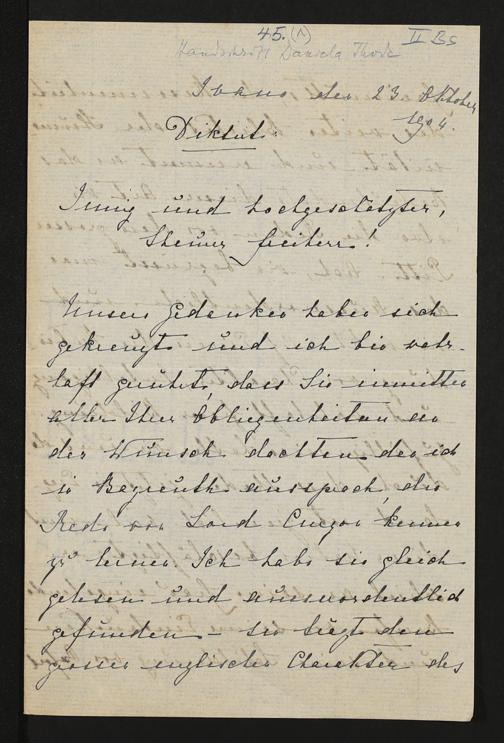 45. (1)
II Bs
Handschrift Daniela Thode
den 23 Oktober
1904.
Diktat.
Innig und hochgeschätzter,
theurer Freiherr!
Unsere Gedanken haben sich
gekreuzt und ich bin wahr-
haft gerührt, dass Sie inmitten
aller Ihrer Obliegenheiten an
den Wunsch dachten den ich
in Bayreuth aussprach, die
Rede von Lord Curzon kennen
zu lernen. Ich habe sie gleich
gelesen und ausserordentlich
gefunden – sie trägt den
grossen englischen Charakter des